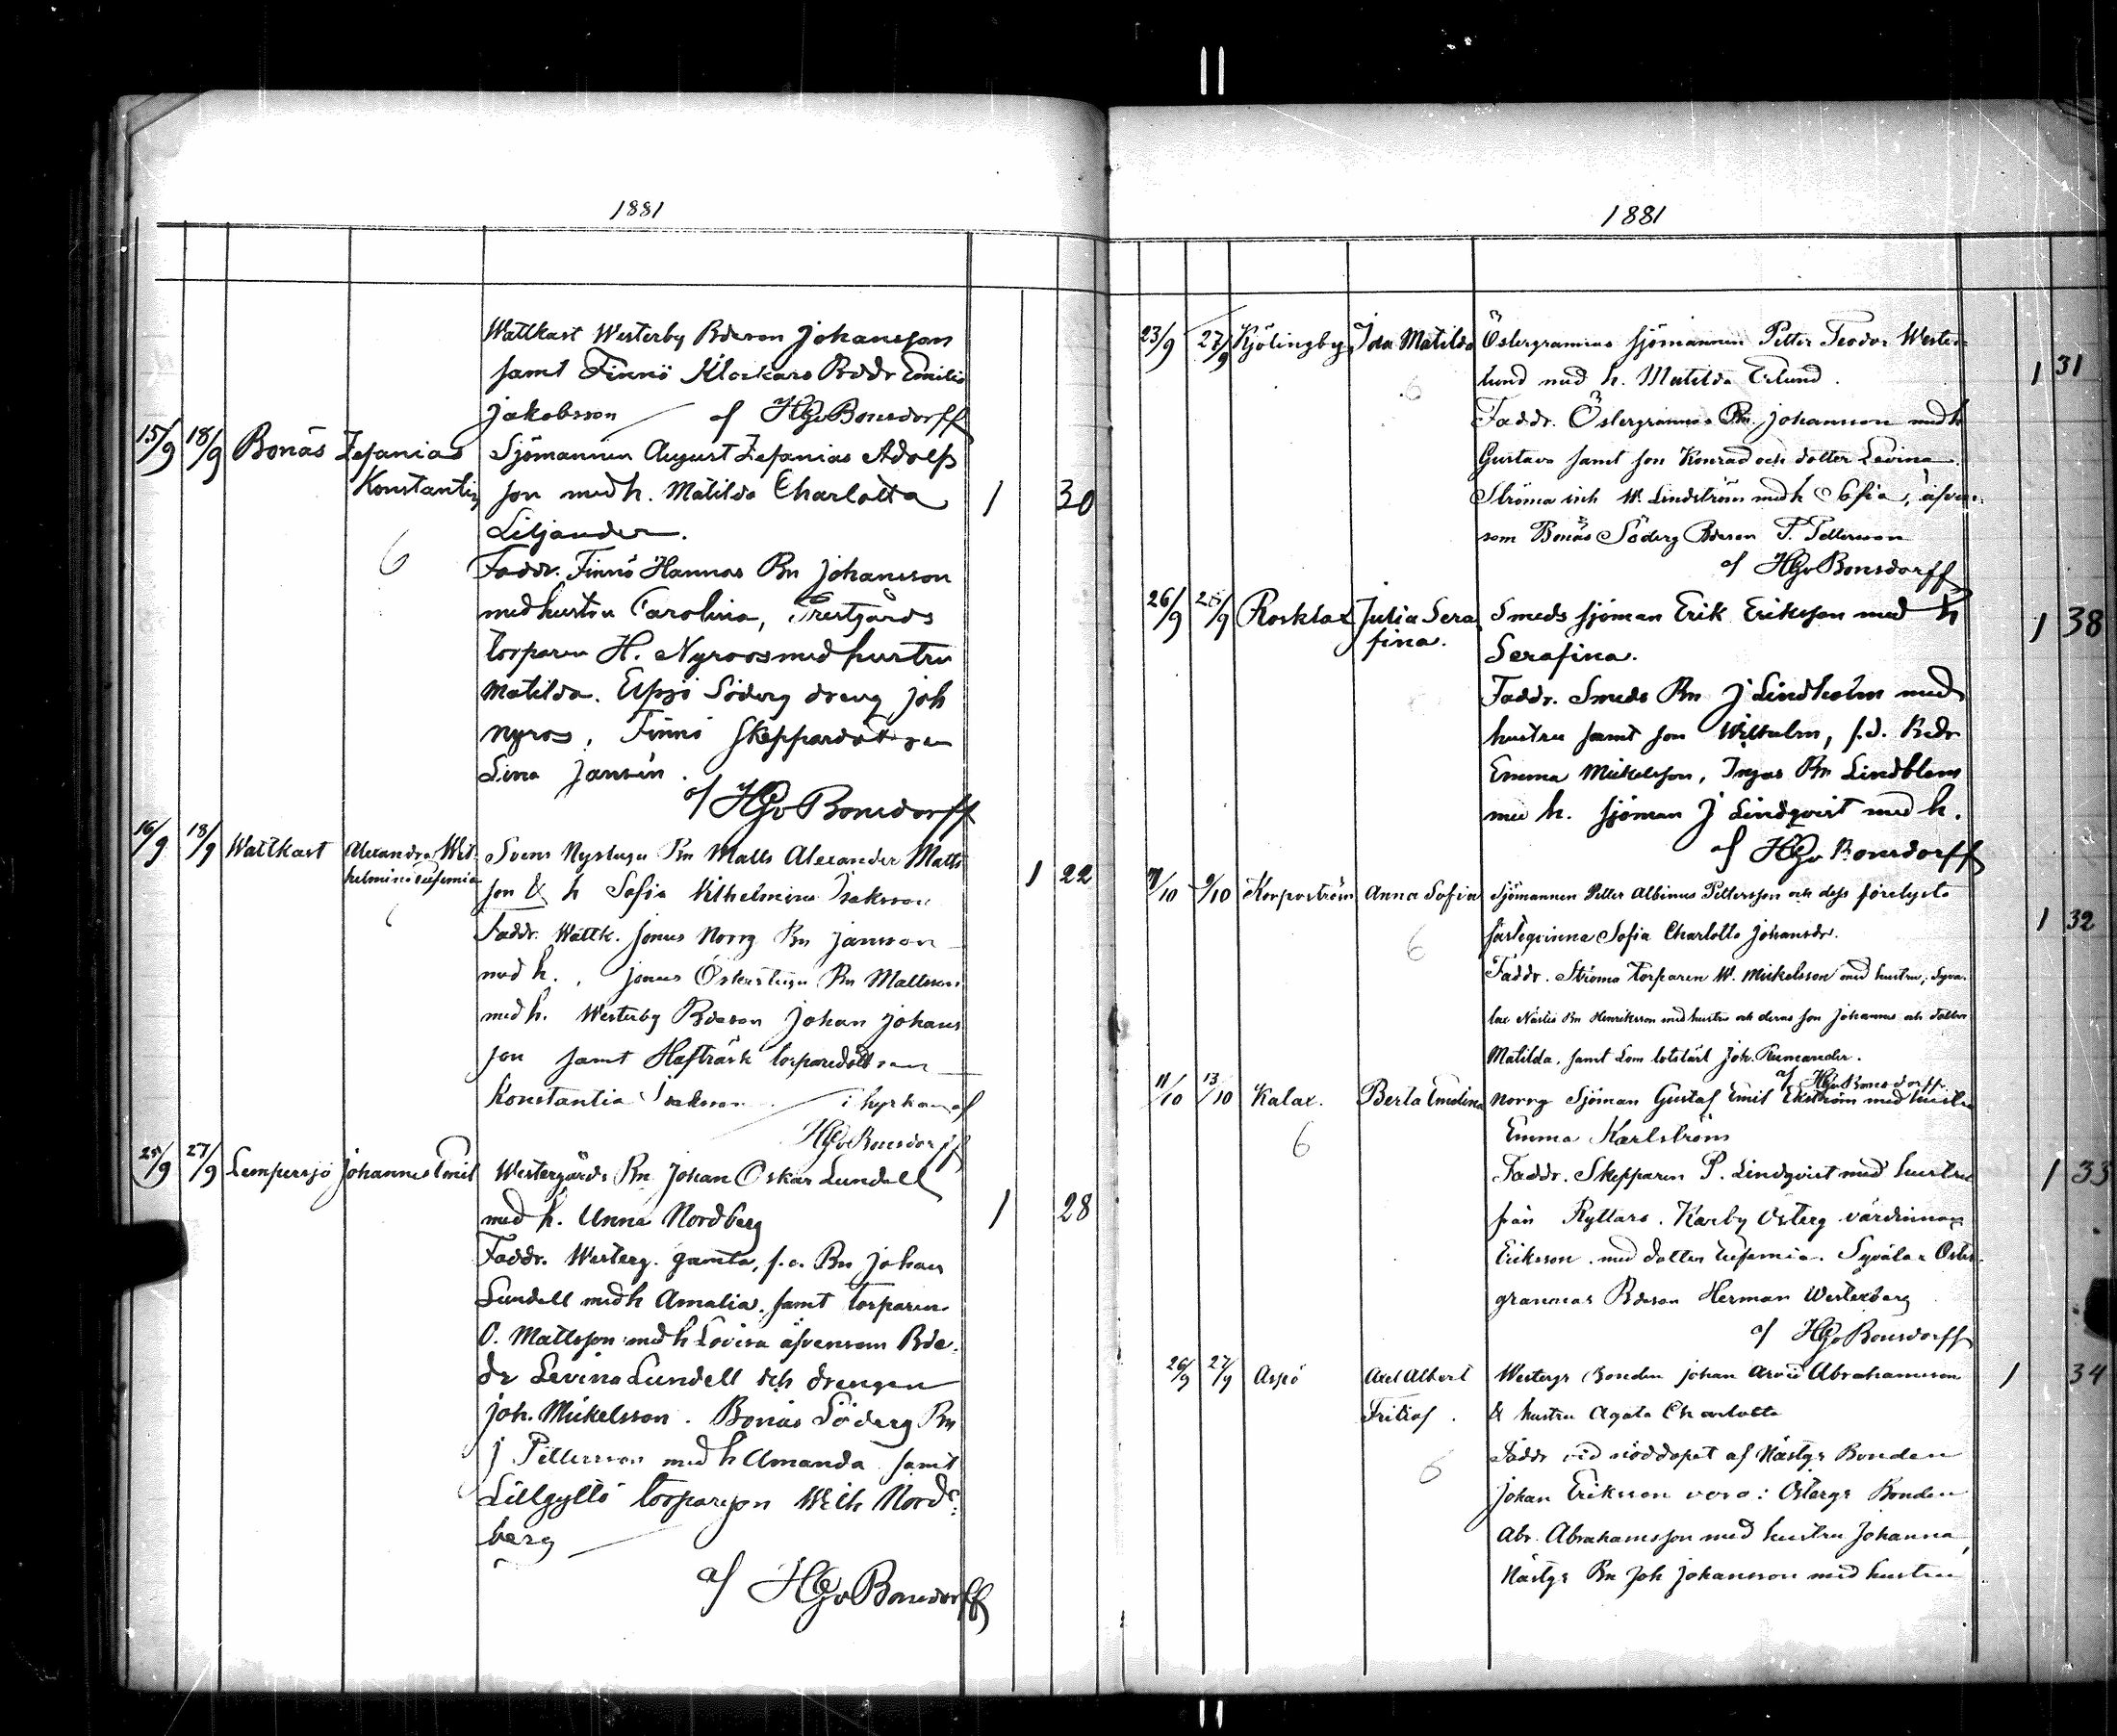 1881
Wattkast Westerby Bdeson Johansson
samt Finnö Klockars Bddr Emilia
Jakobsson af HGvBonsdorff
15/9 18/9 Bonäs Zefanias Sjömannen August Zefanias Adolfs
Konstantin son med h. Matilda Charlotta 1 30
Liljander.
6 Faddr. Finnö Hannas Bn Johansson
med hustru Carolina, Prestgårds
torparen H. Nyroos med hustru
Matilda. Elfsjö Söderg dreng Joh
Nyros, Finnö Skeppardottren
Lina Jansén.
af HGvBonsdorff
16/9 18/9 Wattkast Alexandra Wil- Svens Nystugu Bn Matts Alexander Matts
helmina Eufemia son & h Sofia Vilhelmina Isaksson 1 22
Faddr. Wattk. Jonus Norrg Bn Jansson
med h., Jonus Österstugu Bn Mattsson
med h. Westerby Bdeson Johan Johans
son samt Hafträsk torparedottren
Konstantia Isaksson i kyrkan af
HGvBonsdorff
25/9 27/9 Lempersjö Johannes Emil Westergårds Bn Johan Oskar Lundell
med h. Anna Nordberg 1 28
Faddr. Westerg. gamla, f.d. Bn Johan
Lundell med h Amalia, samt torparen
O. Mattsson med h Lovisa äfvensom Bde
dr Levina Lundell och drengen
Joh. Mickelsson. Bonäs Söderg Bn
J Pettersson med h Amanda samt
Lillgyltö torparson Wilh Nord-
berg
af HGvBonsdorff
1881
23/9 27/9 Kjölingby Ida Matilda Östergrannas sjömannen Petter Teodor Wester-
lund med h. Matilda Erlund. 1 31
6 Faddr. Östergrannas Bn. Johansson med h
Gustava samt son Konrad och dotter Levina.
Ströma inh W. Lindström med h Sofia, äfven-
som Bonäs Söderg Bdeson P. Pettersson
af HGvBonsdorff
26/9 /9 Rosklax Julia Sera Smeds sjöman Erik Eriksson med h 1 38
fina. Serafina.
Faddr. Smeds Bn J Lindholm med
hustru samt son Wilhelm, f.d. Bddr
Emma Mickelsson, Ingas Bn Lindblom
med h. sjöman J Lindqvist med h.
af HGvBonsdorff
/10 9/10 Korpoström Anna Sofia Sjömannen Petter Albinus Pettersson och dess förelysta
fästeqvinna Sofia Charlotta Johansdr. 1 32
6 Faddr. Ströma torparen W. Mickelsson med hustru, Syva-
lax Näsis Bn Henriksson med hustru och deras son Johannes och dotter
Matilda, samt Lom lotslärl Joh. Remander.
af HGvBonsdorff
11/10 13/10 Kalax. Berta Emelina Norrg Sjöman Gustaf Emil Ekström med hustru
6 Emma Karlström
Faddr. Skepparen P. Lindqvist med hustru 1 33
från Ryttars. Karby Österg värdinnan
Eriksson med dotter Eufemia. Syvälax Öster-
grannas Bdeson Herman Westerberg
af HGvBonsdorff
26/9 27/9 Aspö Axel Albert Westergs Bonden Johan Arvid Abrahamsson 1 34
Fritiof. & hustru Agata Charlotta
6 Faddr vid nöddopet af Nästgs Bonden
Johan Eriksson voro: Östergs Bonden
Abr. Abrahamsson med hustru Johanna,
Nästgs Bn Joh Johansson med hustru